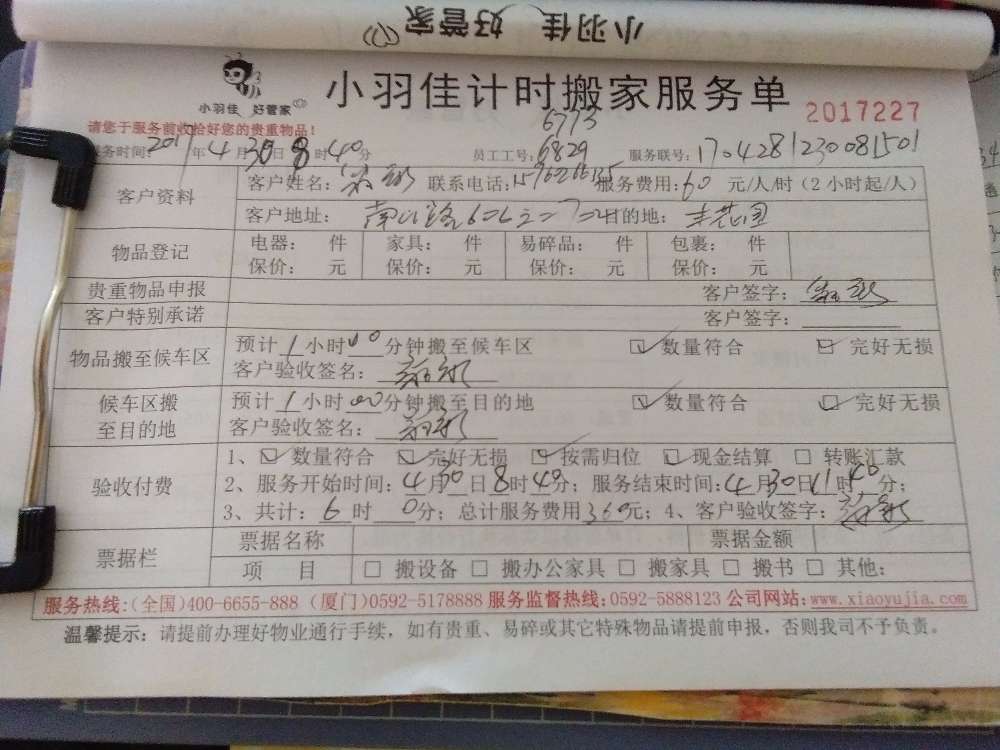 小羽佳 好管家
小羽佳 好管家
小羽佳计时搬家服务单
2017227
请您于服务前收拾好您的贵重物品!
服务时间: 2017年4月30日8时40分 员工工号: 6773 6829 服务联号: 1704281230081501
客户资料
客户姓名: 联系电话: 服务费用: 60 元/人/时(2小时起/人)
客户地址: 目的地:
物品登记
电器: 件 家具: 件 易碎品: 件 包裹: 件
保价: 元 保价: 元 保价: 元 保价: 元
贵重物品申报 客户签字:
客户特别承诺 客户签字:
物品搬至候车区
预计1小时00分钟搬至候车区 ☑ 数量符合 ☑ 完好无损
客户验收签名:
候车区搬至目的地
预计1小时00分钟搬至目的地 ☑ 数量符合 ☑ 完好无损
客户验收签名:
验收付费
1、☑ 数量符合 ☑ 完好无损 ☑ 按需归位 ☑ 现金结算 □ 转账汇款
2、服务开始时间: 4月30日8时40分; 服务结束时间: 4月30日11时40分;
3、共计: 6时0分; 总计服务费用360元; 4、客户验收签字:
票据栏
票据名称 票据金额
项 目 □ 搬设备 □ 搬办公家具 □ 搬家具 □ 搬书 □ 其他:
服务热线:(全国)400-6655-888 (厦门)0592-5178888 服务监督热线:0592-5888123 公司网站:www.xiaoyujia.com
温馨提示: 请提前办理好物业通行手续，如有贵重、易碎或其它特殊物品请提前申报，否则我司不予负责。